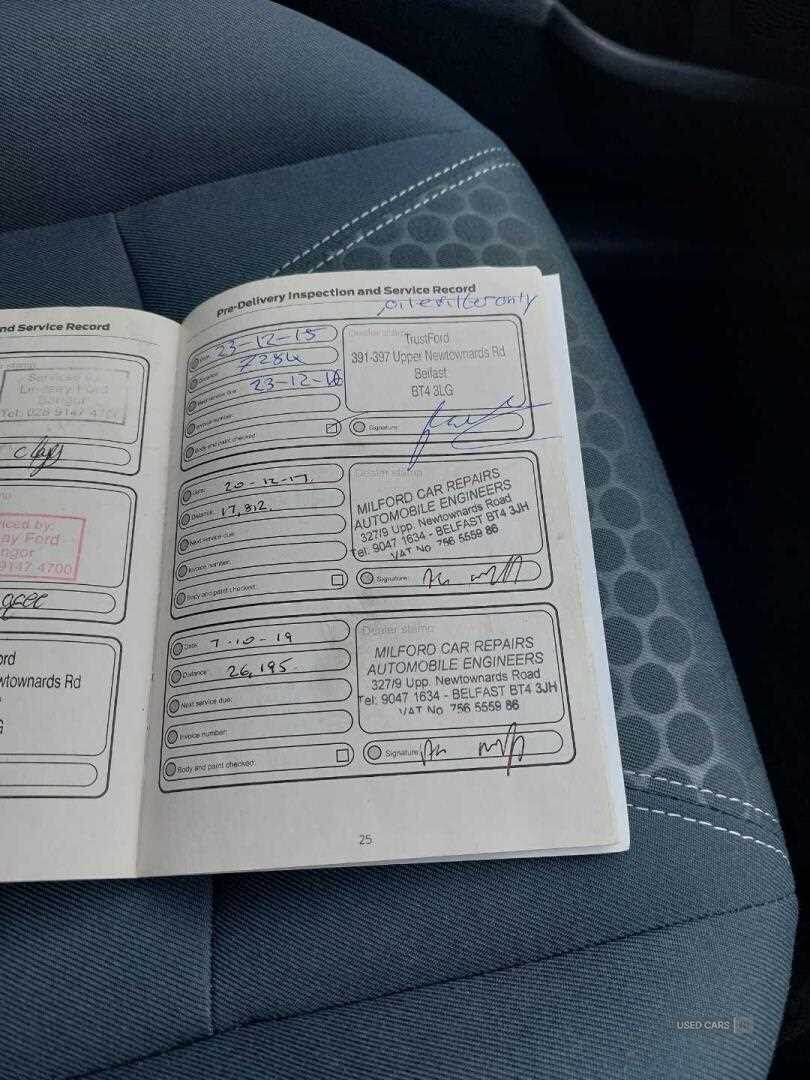 nd Service Record
Serviced by:
Lindsay Ford
Bangor
Tel: 028 9147 4700
iced by:
ay Ford
angor
9147 4700
ord
wtownards Rd
Pre-Delivery Inspection and Service Record
oil & filter only
Date: 23-12-15
Distance: 7284
Next service due: 23-12-16
Invoice number:
Body and paint checked:
Dealer stamp
TrustFord
391-397 Upper Newtownards Rd
Belfast
BT4 3LG
Signature:
Date: 20-12-17.
Distance: 17,812.
Next service due:
Invoice number:
Body and paint checked:
Dealer stamp
MILFORD CAR REPAIRS
AUTOMOBILE ENGINEERS
327/9 Upp. Newtownards Road
Tel: 9047 1634 - BELFAST BT4 3JH
VAT No 756 5559 86
Signature:
Date: 7-10-19
Distance: 26,195.
Next service due:
Invoice number:
Body and paint checked:
Dealer stamp
MILFORD CAR REPAIRS
AUTOMOBILE ENGINEERS
327/9 Upp. Newtownards Road
Tel: 9047 1634 - BELFAST BT4 3JH
VAT No 756 5559 86
Signature:
25
USED CARS NI